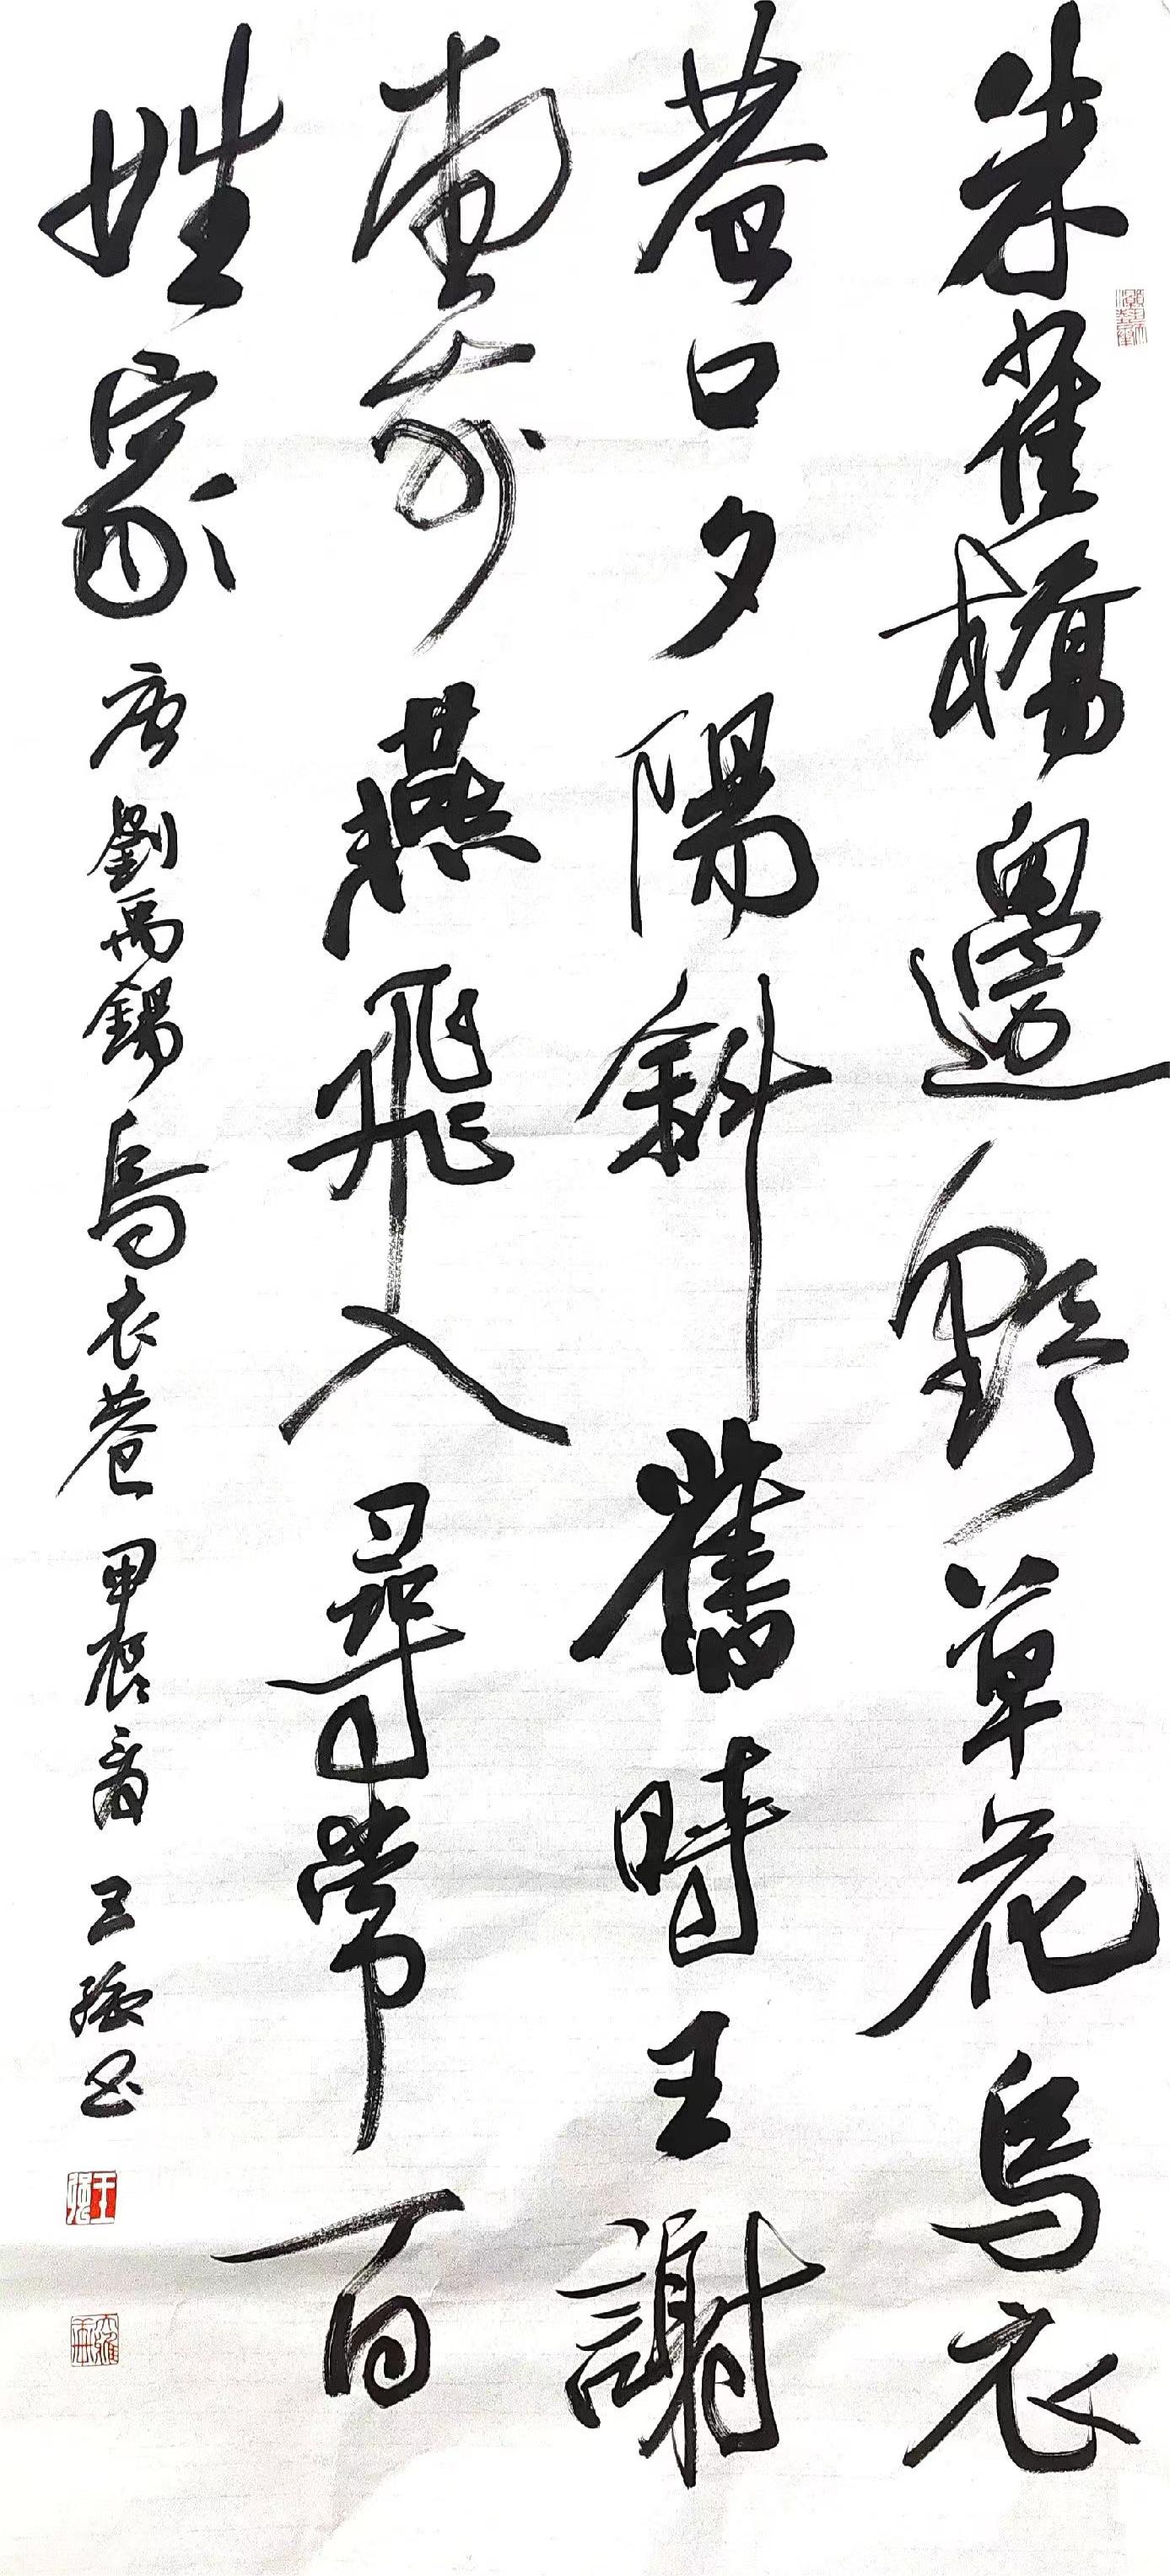 朱雀橋邊野草花烏衣
巷口夕陽斜舊時王謝
堂前燕飛入尋常百
姓家
唐劉禹錫烏衣巷 甲辰 王強書
王強